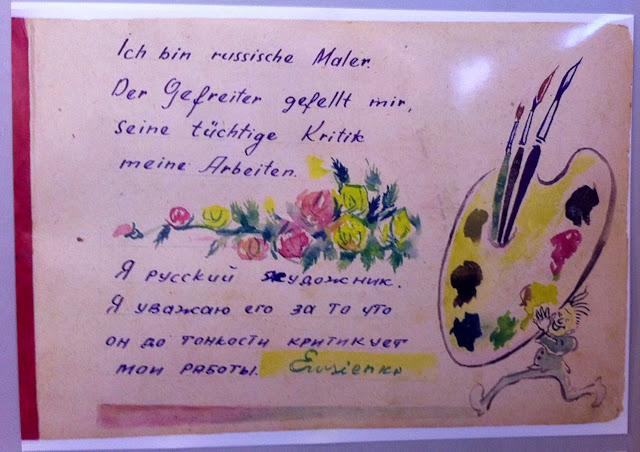 Ich bin russische Maler.
Der Gefreiter gefellt mir,
seine tüchtige Kritik
meine Arbeiten.
Я русский художник.
Я уважаю его за то что
он до тонкости критикует
мои работы.